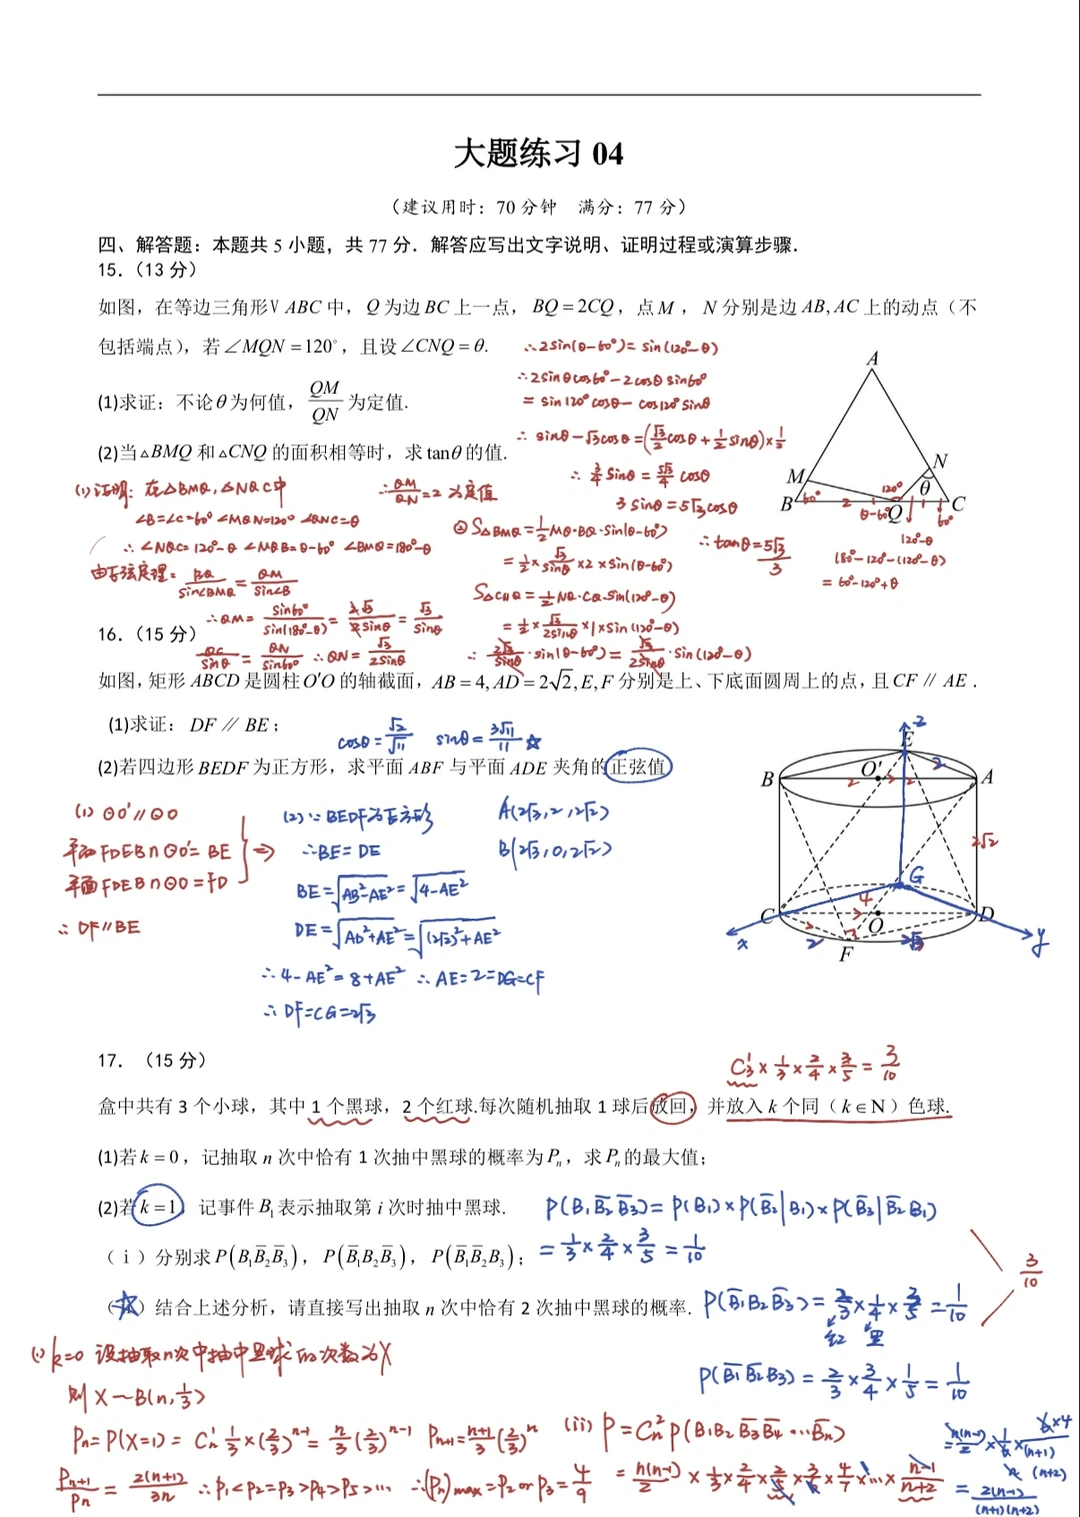 大题练习 04
（建议用时：70 分钟　满分：77 分）
四、解答题：本题共 5 小题，共 77 分．解答应写出文字说明、证明过程或演算步骤．
15.（13 分）
如图，在等边三角形V ABC 中，Q 为边 BC 上一点，BQ = 2CQ，点 M ，N 分别是边 AB, AC 上的动点（不
包括端点），若∠MQN = 120°，且设∠CNQ = θ.
∴2sin(θ-60°)= sin(120°-θ)
∴2sinθcos60°-2cosθsin60°
= sin120°cosθ- cos120°sinθ
(1)求证：不论θ为何值，QM/QN 为定值.
∴ sinθ-√3cosθ=(√3/2cosθ+1/2sinθ)×1/2
(2)当△BMQ 和△CNQ 的面积相等时，求 tanθ 的值.
∴ 3/4 sinθ = 5√3/4 cosθ
3 sinθ=5√3cosθ
∴tanθ=5√3/3
A
M
N
B
Q
C
60°
2
120°
θ
θ-60°
1
60°
120°-θ
180°-120°-(120°-θ)
= 60°-120°+θ
(1)证明：在△BMQ,△NQC中
∠B=∠C=60° ∠MQN=120° ∠QNC=θ
∴∠NQC=120°-θ ∠MQB=θ-60° ∠BMQ=180°-θ
由正弦定理：BQ/sin∠BMQ = QM/sin∠B
∴QM= sin60°/sin(180°-θ) = 2√3/2sinθ = √3/sinθ
QC/sinθ = QN/sin60° ∴QN= √3/2sinθ
∴QM/QN=2 为定值
② S△BMQ=1/2MQ·BQ·sin(θ-60°)
= 1/2×√3/sinθ×2×sin(θ-60°)
S△CNQ=1/2NQ·CQ·sin(120°-θ)
=1/2×√3/2sinθ×1×sin(120°-θ)
∴ 2√3/sinθ·sin(θ-60°)= √3/2sinθ·sin(120°-θ)
16.（15 分）
如图, 矩形 ABCD 是圆柱 O′O 的轴截面，AB = 4, AD = 2√2, E, F 分别是上、下底面圆周上的点，且 CF // AE .
(1)求证：DF // BE；
cosθ=√2/√11 sinθ=3√11/11 ☆
(2)若四边形 BEDF 为正方形，求平面 ABF 与平面 ADE 夹角的正弦值
(1) ⊙O′//⊙O
平面FDEB∩⊙O′= BE
平面FDEB∩⊙O=FD
⇒
∴ DF//BE
(2)∵BEDF为正方形
∴BE= DE
BE=√(AB²-AE²)=√(4-AE²)
DE=√(AD²+AE²)=√((2√2)²+AE²)
∴4-AE²=8+AE² ∴AE=2=DG=CF
∴DF=CG=2√3
A(2√3,2,2√2)
B(2√3,0,2√2)
z
E
B
O′
A
2
2
2
2√2
G
4
C
O
D
x
2
F
2√3
y
17.（15 分）
C₃¹×1/3×2/4×3/5=3/10
盒中共有 3 个小球，其中 1 个黑球，2 个红球.每次随机抽取 1 球后放回，并放入 k 个同（k∈N）色球.
(1)若 k = 0，记抽取 n 次中恰有 1 次抽中黑球的概率为 Pₙ，求 Pₙ 的最大值；
(2)若 k = 1，记事件 Bᵢ 表示抽取第 i 次时抽中黑球.
P(B₁B̅₂B̅₃)= P(B₁)×P(B̅₂|B₁)×P(B̅₃|B̅₂B₁)
= 1/3×2/4×3/5=1/10
（ⅰ）分别求 P(B₁B̅₂B̅₃)，P(B̅₁B₂B̅₃)，P(B̅₁B̅₂B₃)；
3/10
☆ ）结合上述分析，请直接写出抽取 n 次中恰有 2 次抽中黑球的概率.
P(B̅₁B₂B̅₃)= 2/3×1/4×3/5=1/10
红 黑
P(B̅₁B̅₂B₃)= 2/3×3/4×1/5=1/10
(1)k=0 设抽取n次中抽中黑球的次数为X
则 X～B(n,1/3)
Pn=P(X=1)= Cₙ¹ 1/3×(2/3)ⁿ⁻¹= n/3(2/3)ⁿ⁻¹ Pn+1=n+1/3(2/3)ⁿ
Pn+1/Pn= 2(n+1)/3n ∴P₁<P₂=P₃>P₄>P₅>··· ∴(Pn)max=P₂ or P₃=4/9
(ii) P=Cₙ²P(B₁B₂B̅₃B̅₄···B̅ₙ)
= n(n-1)/2×1/3×2/4×2/5×3/6×4/7×···×n-1/n+2
= 2(n-1)/(n+1)(n+2)